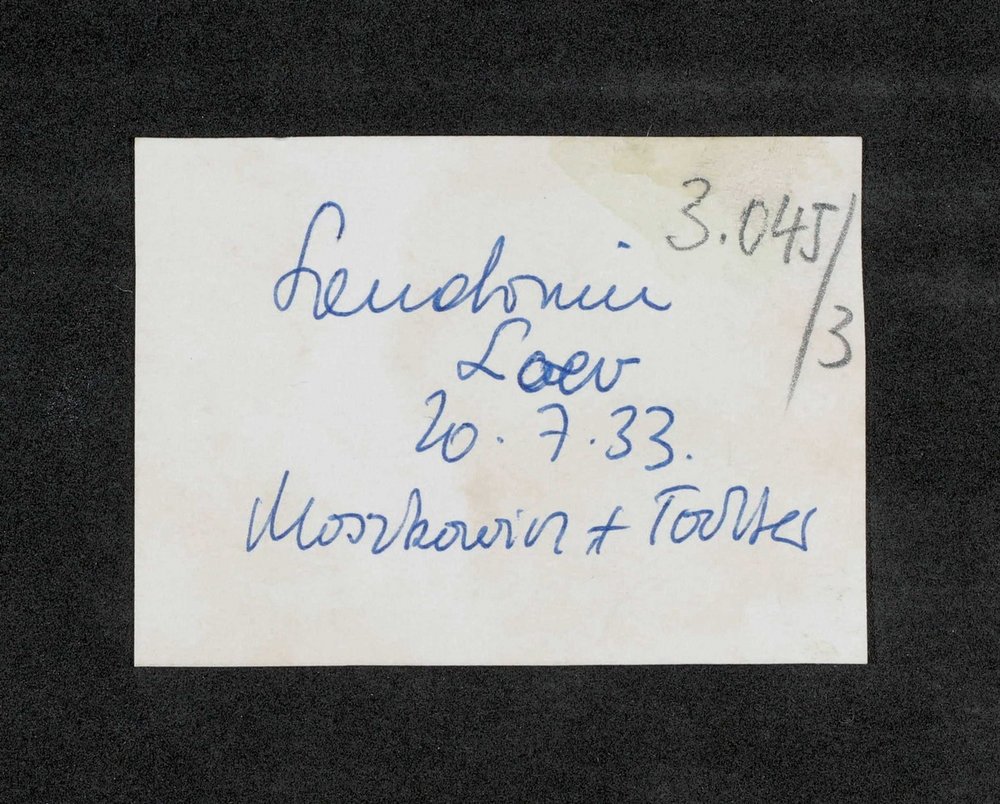 3.045/3
Sandomir
Loew
20.7.33.
Moszkowicz + Tochter